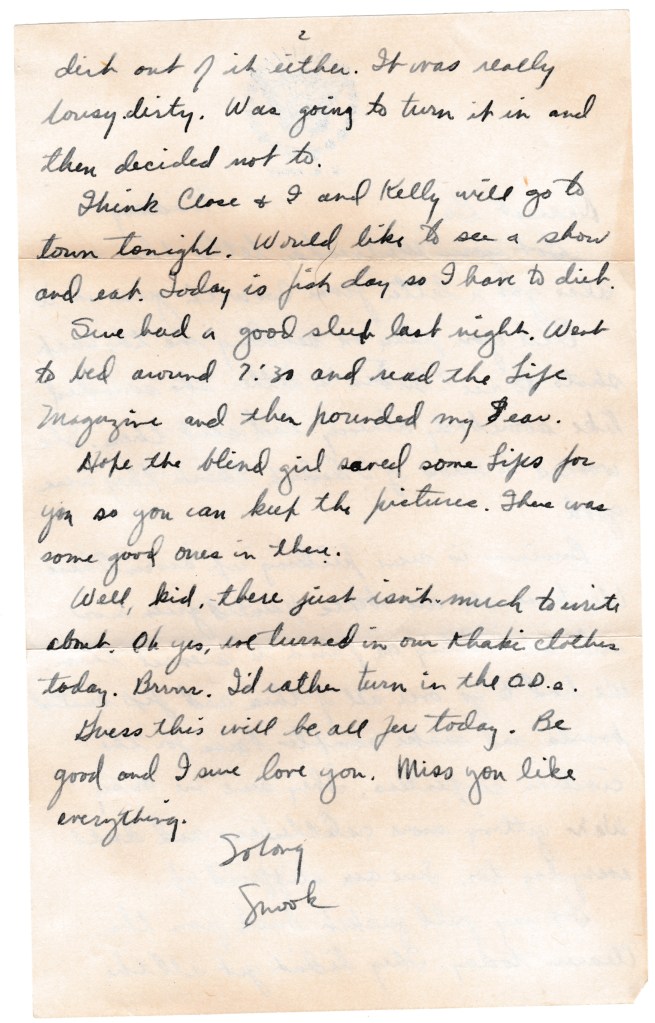 2
dirt out of it either. It was really
lousy dirty. Was going to turn it in and
then decided not to.
Think Close & I and Kelly will go to
town tonight. Would like to see a show
and eat. Today is fish day so I have to diet.
Sure had a good sleep last night. Went
to bed around 7:30 and read the Life
Magazine and then pounded my ear.
Hope the blind girl saved some Lifes for
you so you can keep the pictures. There was
some good ones in there.
Well, kid, there just isn't much to write
about. Oh yes, we turned in our Khaki clothes
today. Brrrr. I'd rather turn in the O.D.s.
Guess this will be all for today. Be
good and I sure love you. Miss you like
everything.
So long
Snook